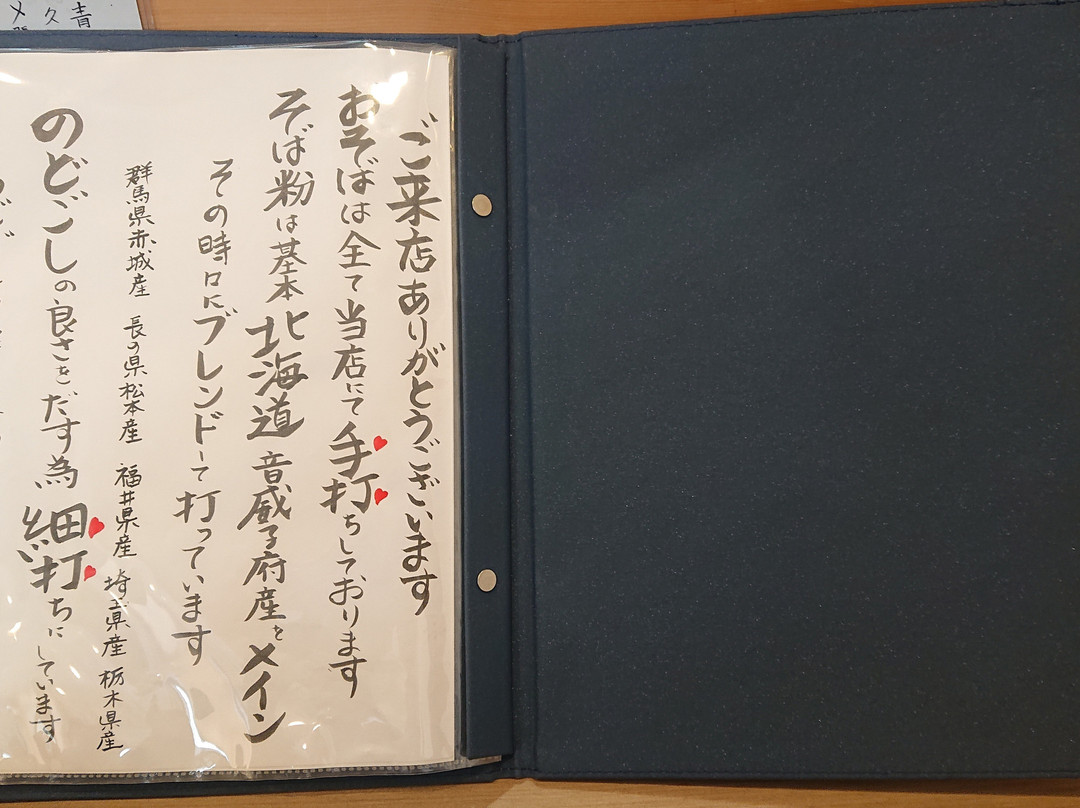 ご来店ありがとうございます
おそばは全て当店にて手打ちしております
そば粉は基本北海道音威子府産をメイン
その時々にブレンドして打っています
群馬県赤城産 長の県松本産 福井県産 埼玉県産 栃木県産
のどごしの良さをだす為細打ちにしています
青
久